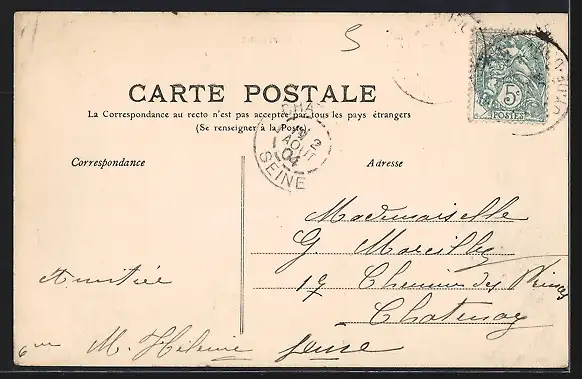 5
CARTE POSTALE
La Correspondance au recto n'est pas acceptée par tous les pays étrangers
(Se renseigner à la Poste)
5c
POSTES
2
AOUT
04
SEINE
Correspondance
Adresse
Mademoiselle
G.
17 Chemin des
Chatenay
Seine
Amitiée
M.